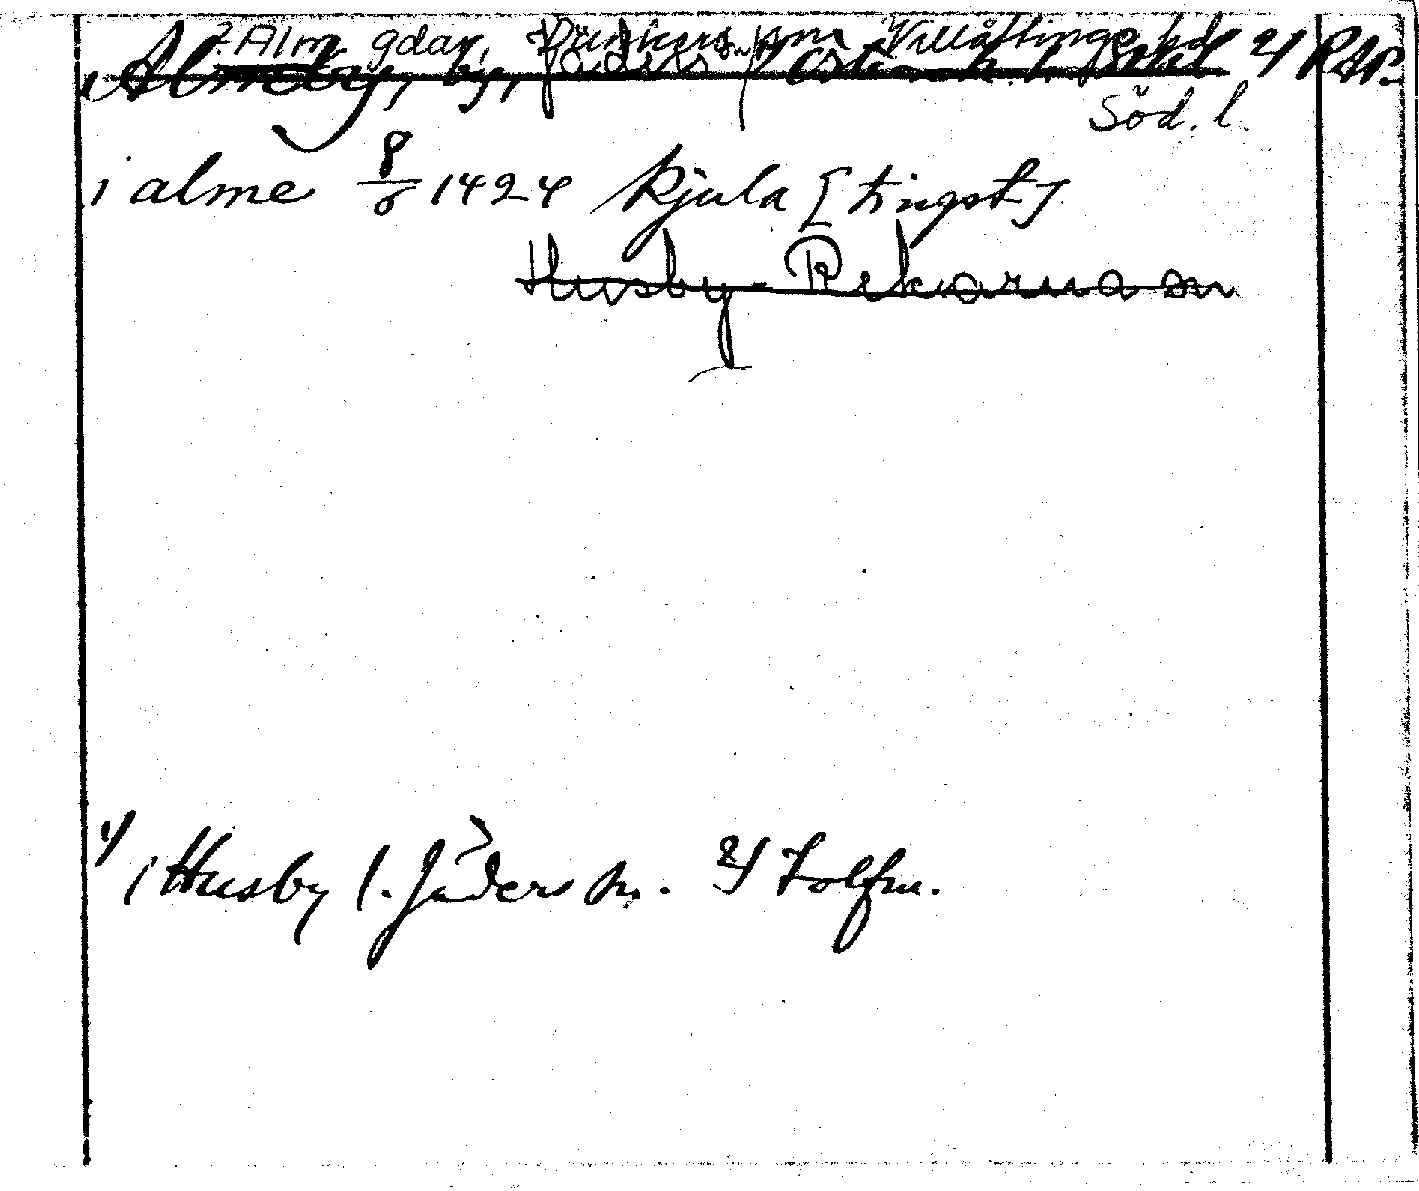 ? Alm gdar, Dunkers sn Villåttinge hd
Almeby, by, Jäders sn Österrek. h. 2/ RAP.
Söd. l.
i alme 8/6 1424 Kjula [tingst]
Husby-Rekarne sn
1/ i Husby l. Jäders sn. 2/ Tolfm.